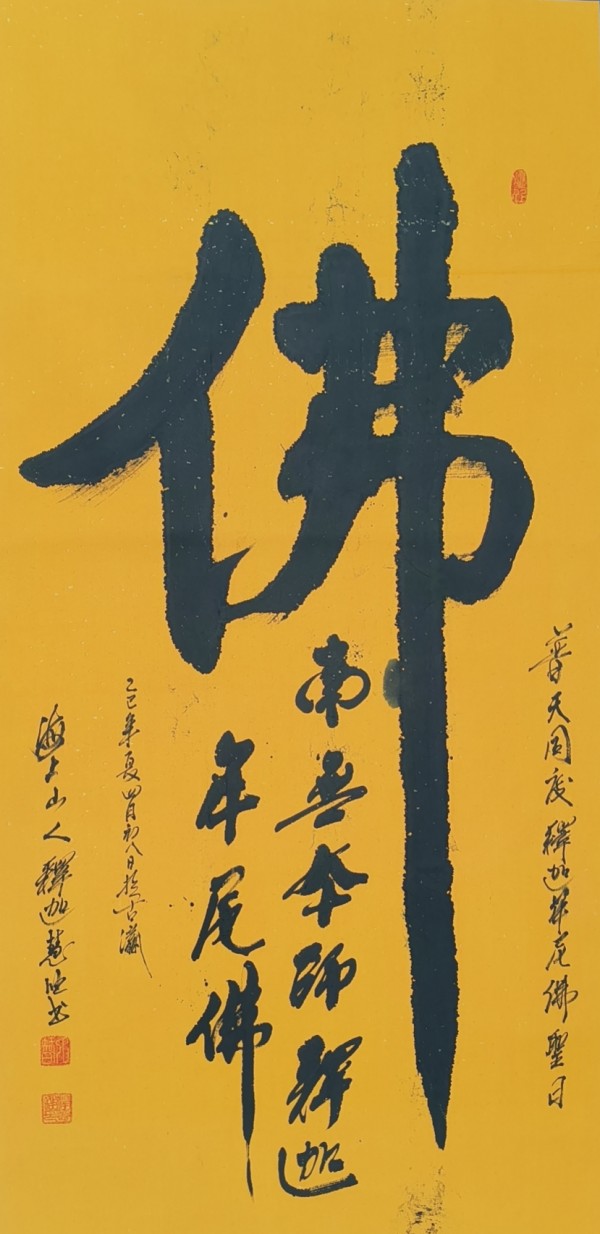 佛
普天同慶釋迦牟尼佛聖日
南無本師釋迦
牟尼佛
乙巳年夏四月初八日於古瀛
海上山人釋迦慧书